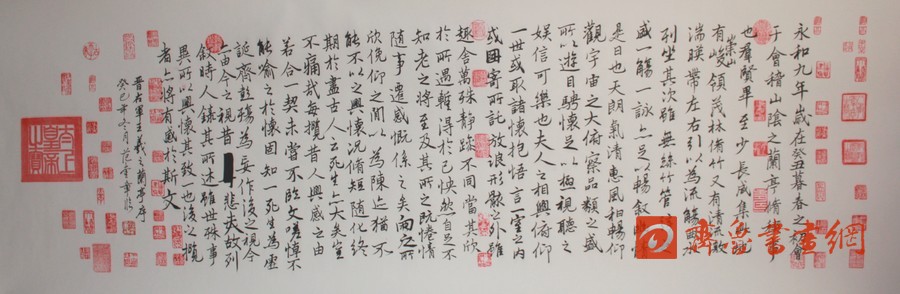 永和九年歲在癸丑暮春之初會
于會稽山陰之蘭亭脩禊事
也羣賢畢至少長咸集此地
有崇山峻領茂林脩竹又有清流激
湍暎帶左右引以為流觴曲水
列坐其次雖無絲竹管
盛一觴一詠亦足以暢敘
是日也天朗氣清惠風和暢仰
觀宇宙之大俯察品類之盛
所以遊目騁懷足以極視聽之
娛信可樂也夫人之相與俯仰
一世或取諸懷抱悟言一室之內
或因寄所託放浪形骸之外雖
趣舍萬殊靜躁不同當其欣
於所遇暫得於己怏然自足不
知老之將至及其所之既惓情
隨事遷感慨係之矣向之所
欣俛仰之間以為陳迹猶不
能不以之興懷況脩短隨化終
期於盡古人云死生亦大矣豈
不痛哉每攬昔人興感之由
若合一契未嘗不臨文嗟悼不
能喻之於懷固知一死生為虛
誕齊彭殤為妄作後之視今
亦由今之視昔悲夫故列
敘時人錄其所述雖世殊事
異所以興懷其致一也後之攬
者亦將有感於斯文
晉右軍王羲之蘭亭序
癸巳年六月范
齊魯書畫網